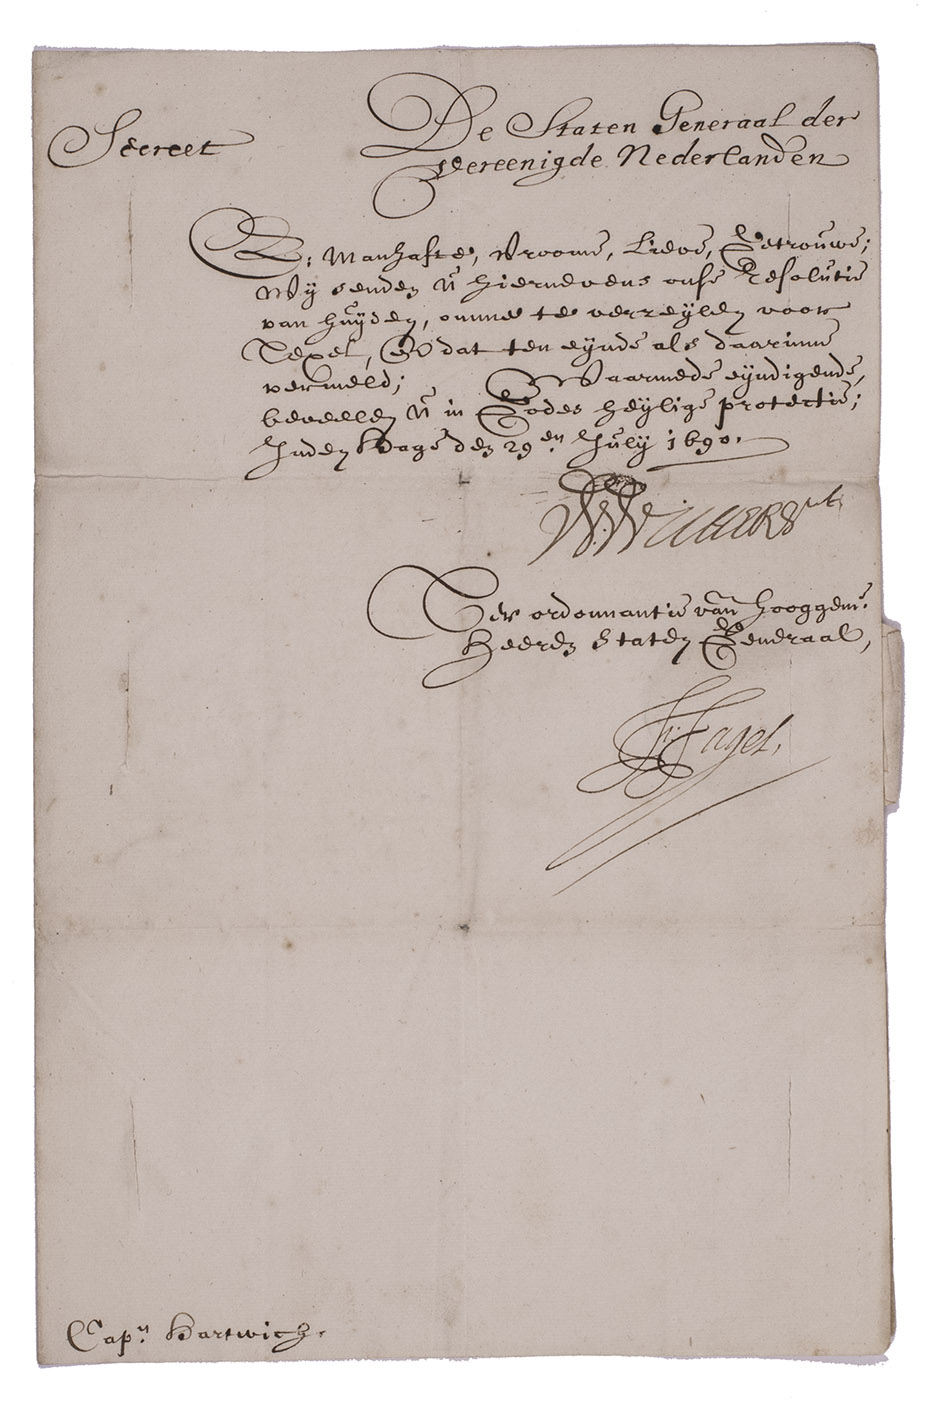 Secreet
De Staten Generaal der
Vereenigde Nederlanden
E: Manhafte, Vroome, Lieve, Getrouwe;
Wij senden U hiernevens onse Resolutie
van huijden, omme te verzeylen voor
Texel, En dat ten eijnde als daarinne
vermeld; Waarmede eijndigende,
beveelen U in Godes heijlige protectie;
Inden Hage den 29en July 1690.
Ter ordonnantie van hooggem:
Heeren Staten Generaal,
Fr: Fagel.
Capn: Hartwich.